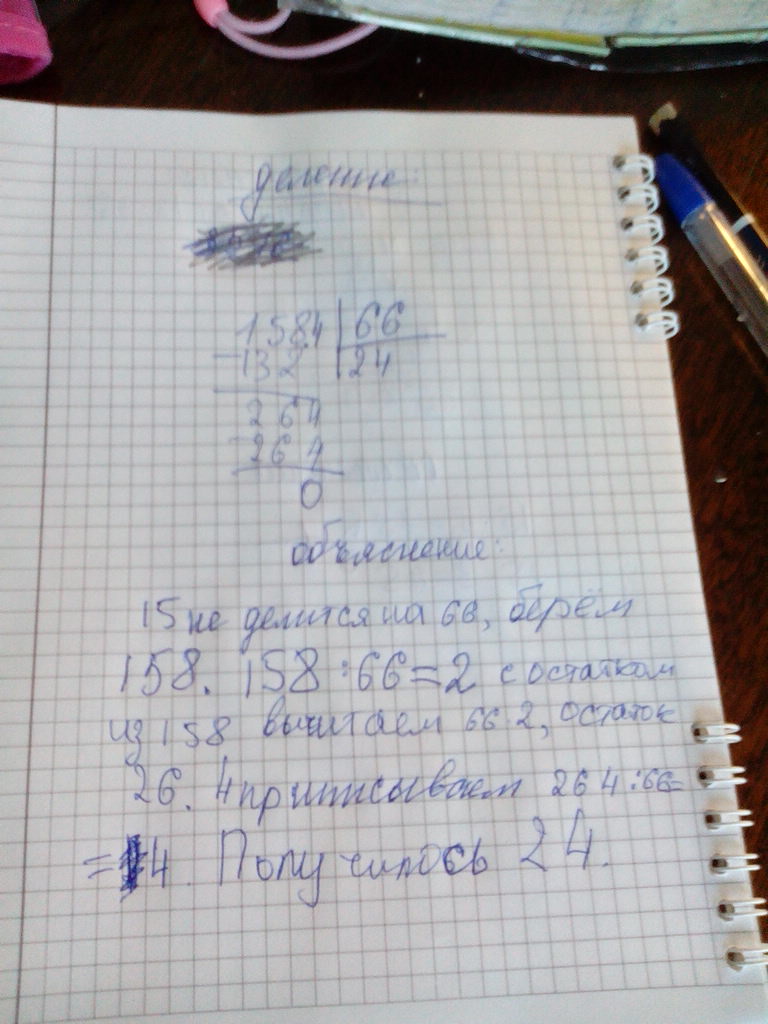 деление:
1584 66
132 24
264
264
0
объяснение:
15 не делится на 66, берём
158. 158:66=2 с остатком
из 158 вычитаем 66·2, остаток
26. 4 приписываем 264:66=
=4. Получилось 24.